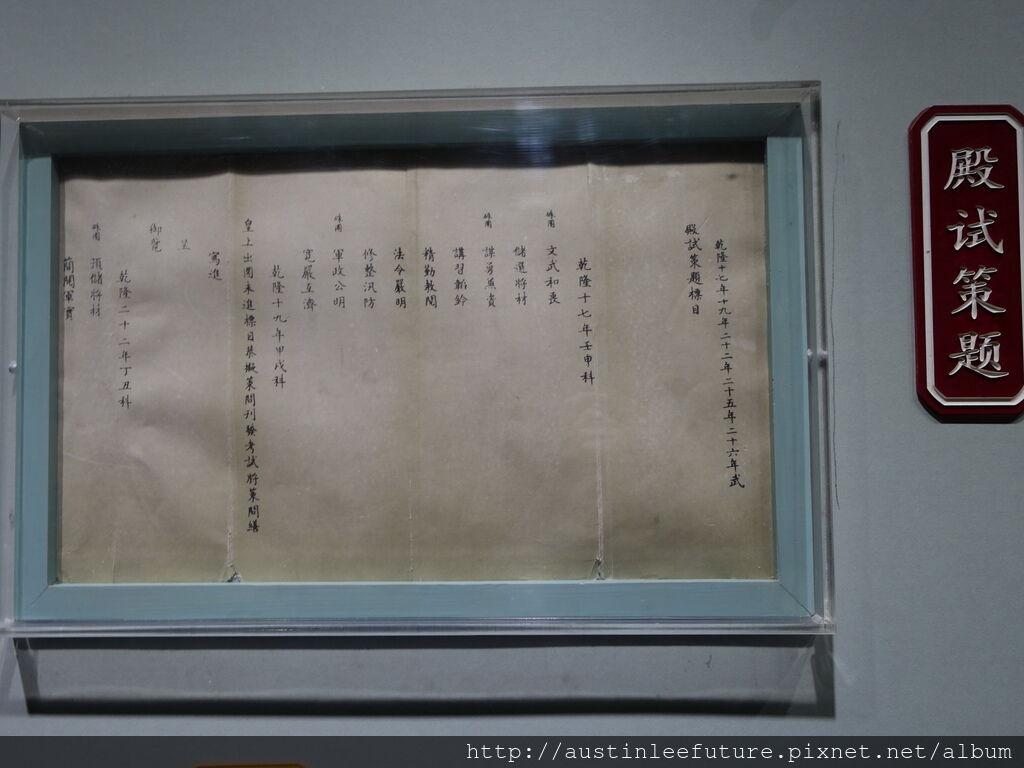 殿试策题
乾隆十七年十九年二十二年二十五年二十六年武
殿試策題標目
乾隆十七年壬申科
硃圈 文武和衷
儲選將材
硃圈 謀勇兼貴
講習韜鈐
精勤教閱
法令嚴明
修整汛防
硃圈 軍政公明
寬嚴互濟
乾隆十九年甲戌科
皇上出圍未進標目恭擬策問刊發考試將策問繕
寫進
呈
御覽
乾隆二十二年丁丑科
硃圈 預儲將材
簡閱軍實
http://austinleefuture.pixnet.net/album